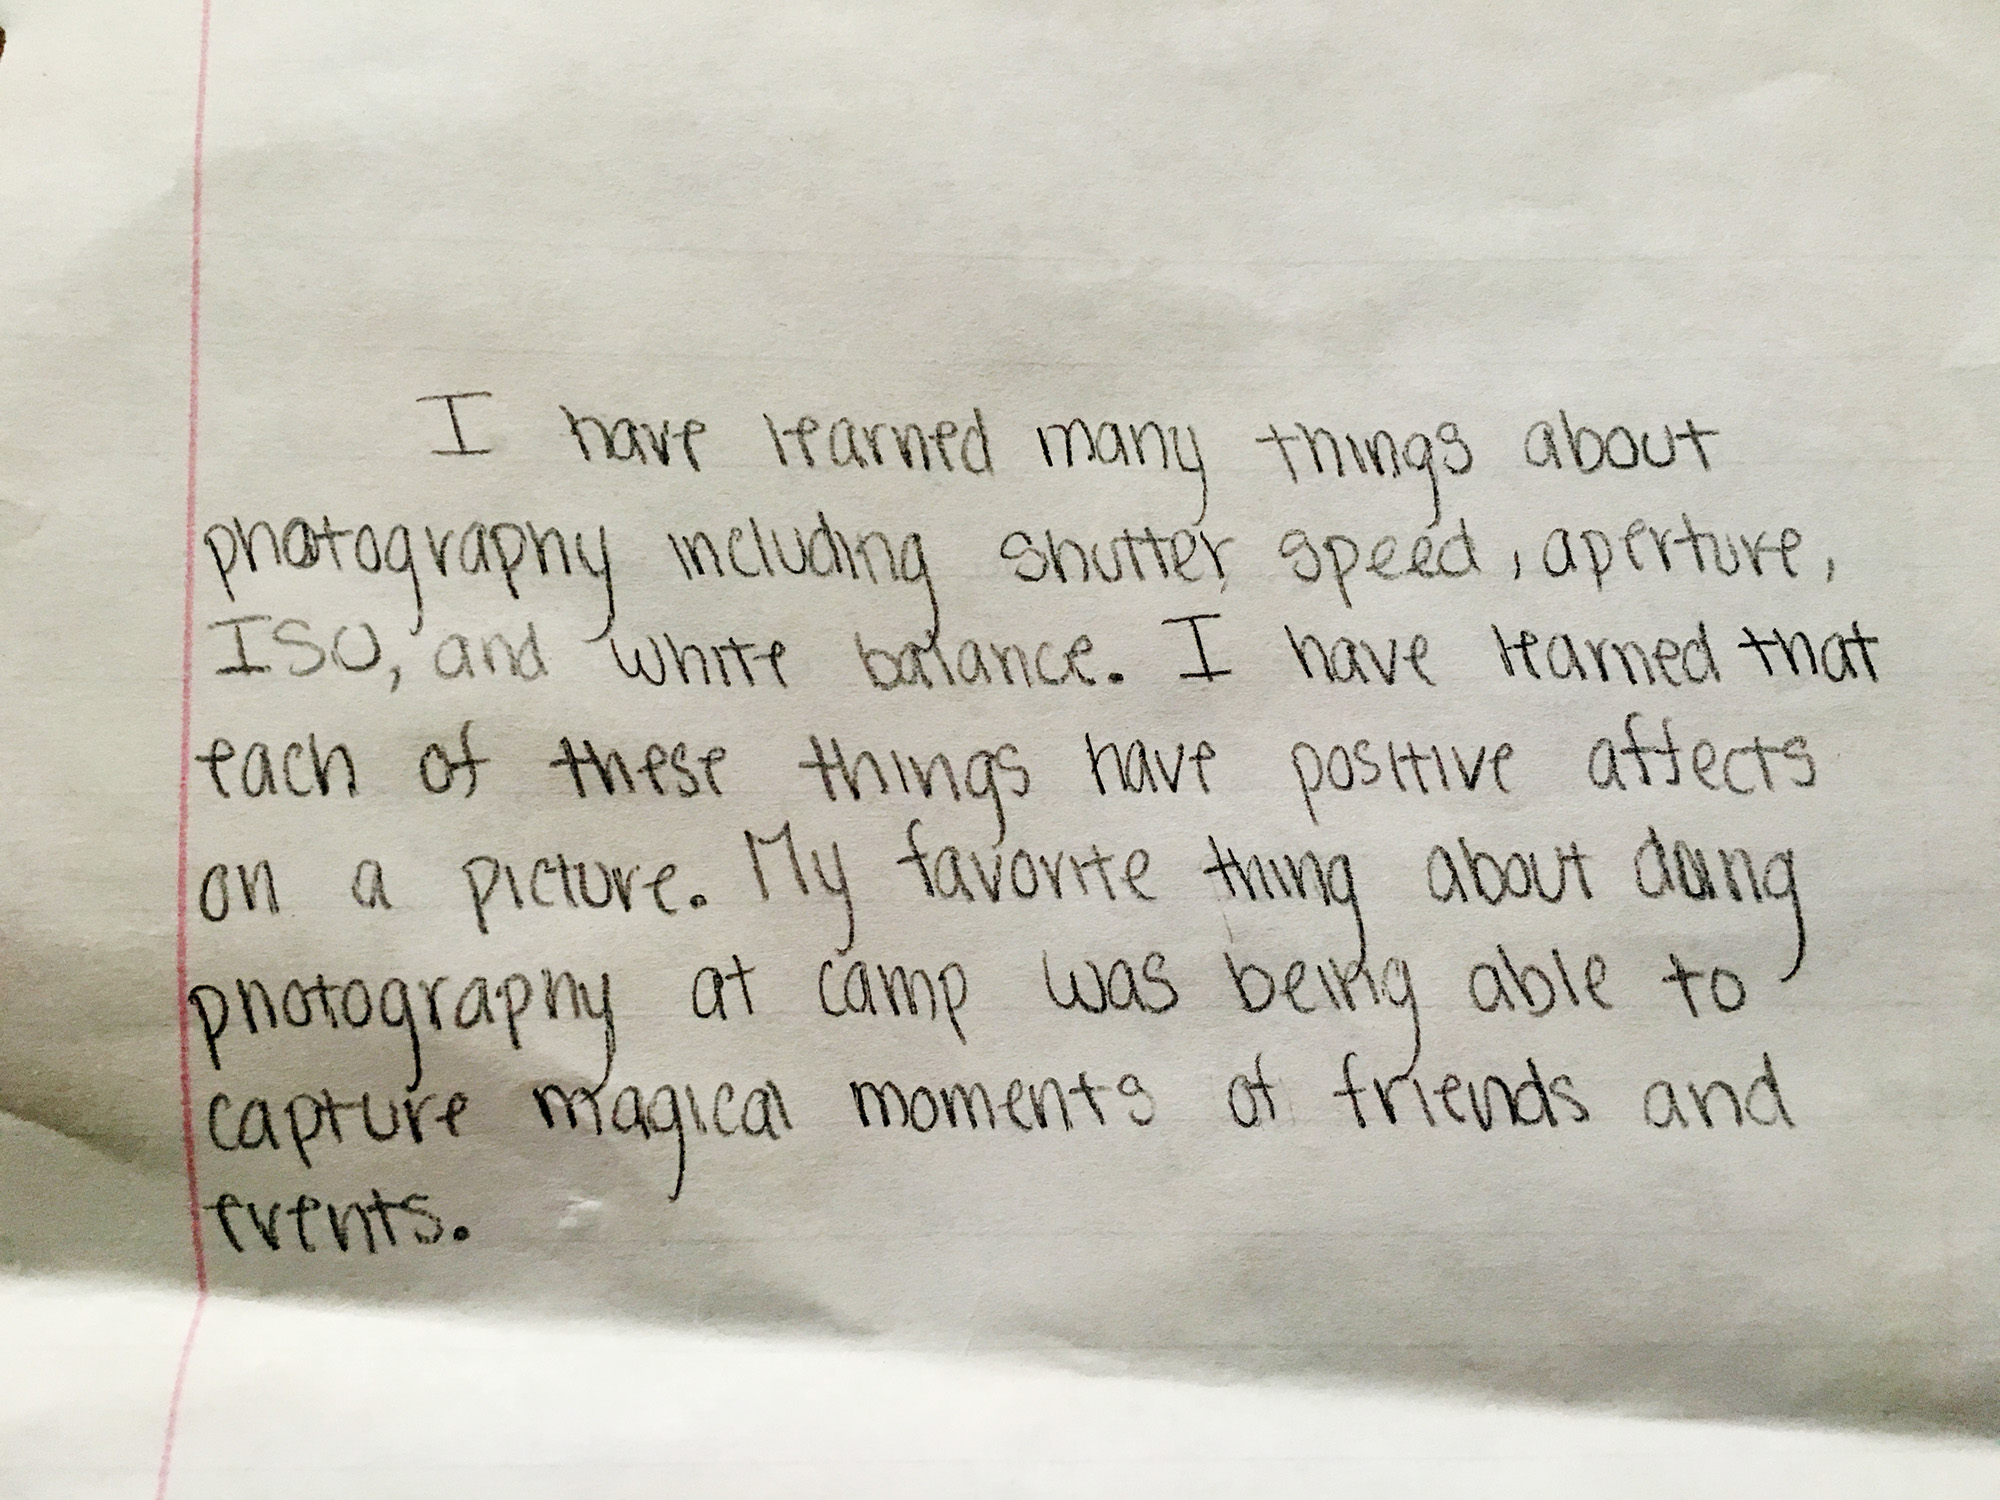 I have learned many things about
photography including shutter speed, aperture,
ISO, and white balance. I have learned that
each of these things have positive affects
on a picture. My favorite thing about doing
photography at camp was being able to
capture magical moments of friends and
events.